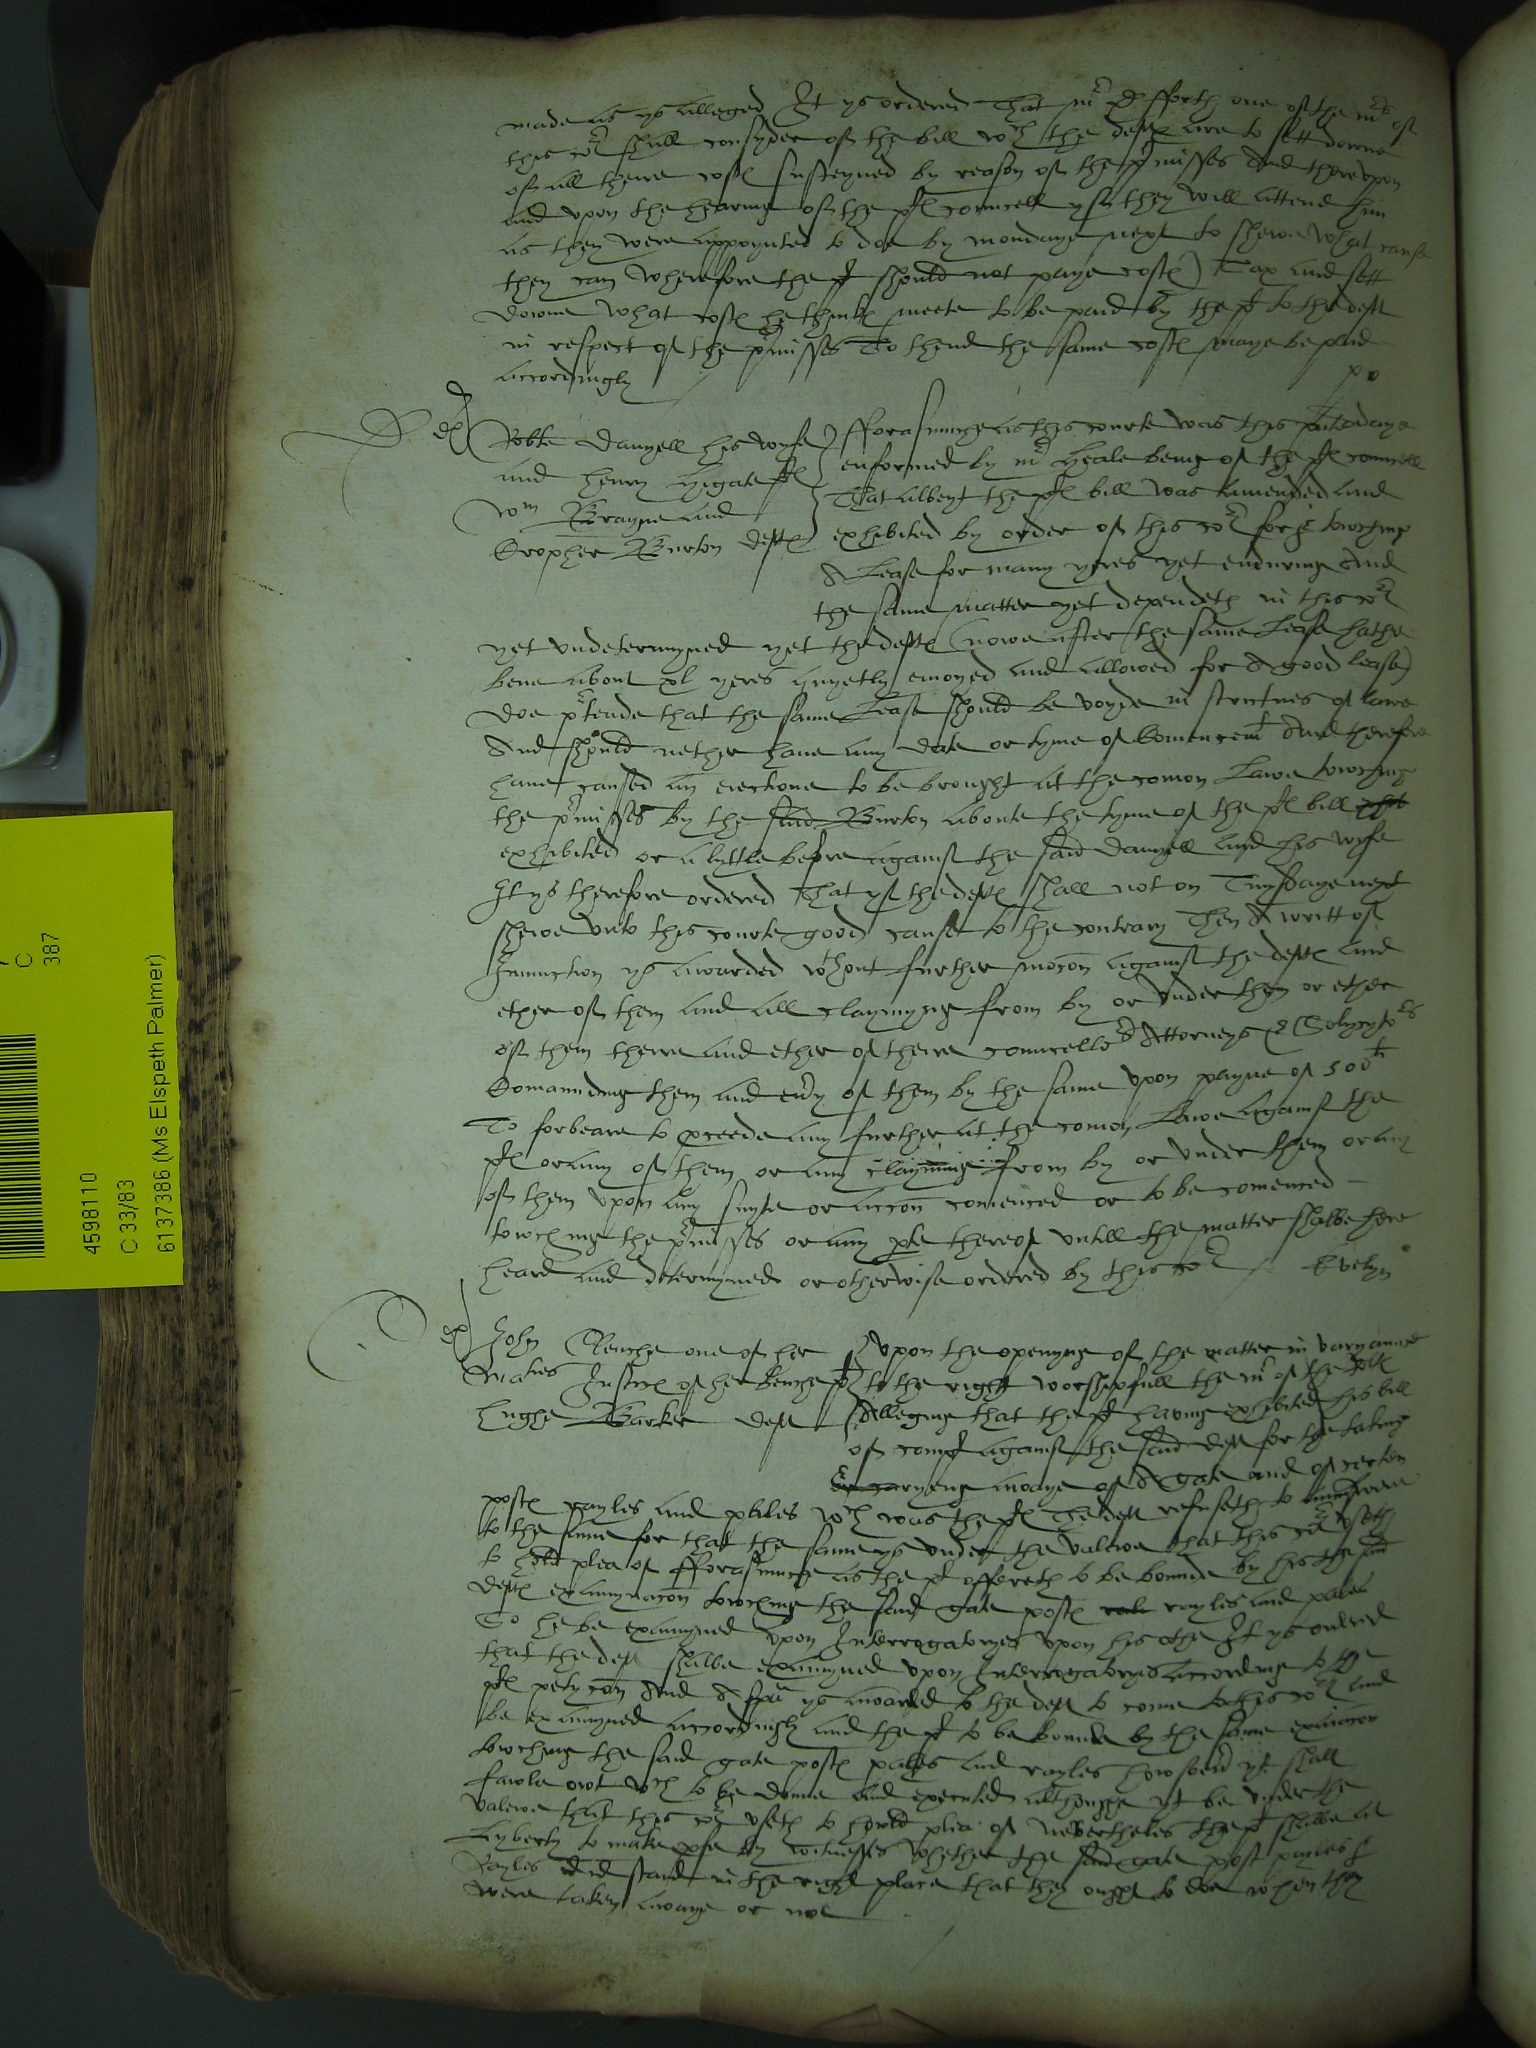 made as ys alleged It ys ordered That mr D fforth one of the mrs of
this cort shall consyder of the bill wch the deftes are to sett downe
of all theire costes susteyned by reason of the prmisses And therevpon
and vpon the hearing of the ples councell yf they will attend him
as they were appoynted to doe by mondaye next to shewe what cause
they can wherefore the pl should not paye costes) Tax and sett
downe what costes he thinkes meete to be paid by the pl to the deftes
in respect of the prmisses To thend the same costes maye be paid
accordingly
po
ex
Robte Danyell his wyfe
and henry higate ples
Wm Brayne and
Cropher Burton deftes
fforasmuche as this courte was this presente daye
enformed by mr Heale being of the ples councell
That albeyt the ples bill was amended and
exhibited by order of this cort for & towching
A Lease for many yeres yet enduring And
the same matter yet dependeth in this cort
yet vndetermyned yet the deftes (nowe after the same Lease hathe
bene about xl yeres quyetly enioyed and allowed for A good lease)
doe prtende that the same Lease should be voyde in strictnes of lawe
And should nether haue any date or tyme of Comencemt And therefore
haue caused an eiectione to be brought at the comon Lawe towching
the prmisses by the said Burton aboute the tyme of the ples bill
exhibited or a lyttle before against the said Danyell and his wife
It ys therefore ordered That yf the deftes shall not on Tuysdaye next
shewe vnto this courte good cause to the contrary Then A writt of
Iniunction ys awarded wthout further mocon against the deftes and
ether of them and all claymyng from by or vnder them or ether
of them theire and ether of theire councellors Attorneys & Solycytors
Comaunding them and eury of them by the same vpon payne of 500li
To forbeare to pceede any further at the comon Lawe against the
ples or any of them or any clayming from by or vnder them or any
of them vpon any suyte or accon comenced or to be comenced
towching the prmisses or any pte thereof vntill the matter shalbe here
heard and determyned or otherwise ordered by this cort
Evelyn
ex
John Clenche one of her
Maties Justices of her benche pl
hughe Barker deft
vpon the openyng of the matter in varyaunce
to the right worshipfull the mr of the Rolles
Alleging that the pl having exhibited his bill
of complt against the said deft for the taking
carying awaye of A gate and of certen
postes rayles and pales wch was the ples The deft refuseth to aunswere
to the same for that the same ys vnder the valewe that this cort vseth
to hold plea of fforasmuche as the pl offereth to be bounde by his the said
deftes examynacon towching the said gate postes rayles and pales
So he be examyned vpon Interrogatoryes vpon his othe It ys ordered
that the deft shalbe examyned vpon Interrogatoryes according to the
ples petycon And A spa ys awarded to the deft to come to this cort and
be examyned accordingly and the pl to be bounde by the same examacon
towching the said gate postes pales and rayles howsoeur yt shall
fawle owt wch to be donne and executed althoughe yt be vnder the
valewe that this cort vseth to hould plea of Neverthelesse the pl shalbe at
Lyberty to make pfe by witnesses whether the said gate post payles &
Rayles did stand in the right place that they ought to doe when they
were taken awaye or not
C
387
4598110
C 33/83
6137386 (Ms Elspeth Palmer)